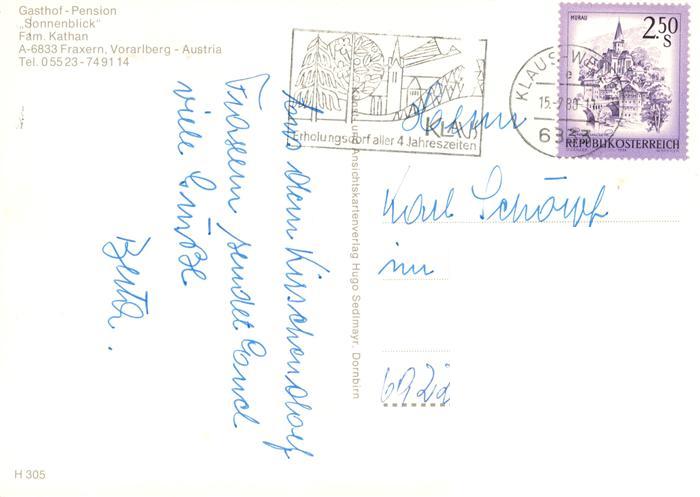 Gasthof-Pension
„Sonnenblick"
Fam. Kathan
A-6833 Fraxern, Vorarlberg - Austria
Tel. 05523-74911 4
KLAUS
Erholungsdorf aller 4 Jahreszeiten
KLAUS-W
15.-7.80-1
e
6833
MURAU
2.50
S
REPUBLIK ÖSTERREICH
Aus dem Kirschendorf
Fraxern sendet Euch
viele Grüße
Berta.
Kunst- und Ansichtskartenverlag Hugo Sedlmayr, Dornbirn
Karl Schöpf
in
6922
H 305